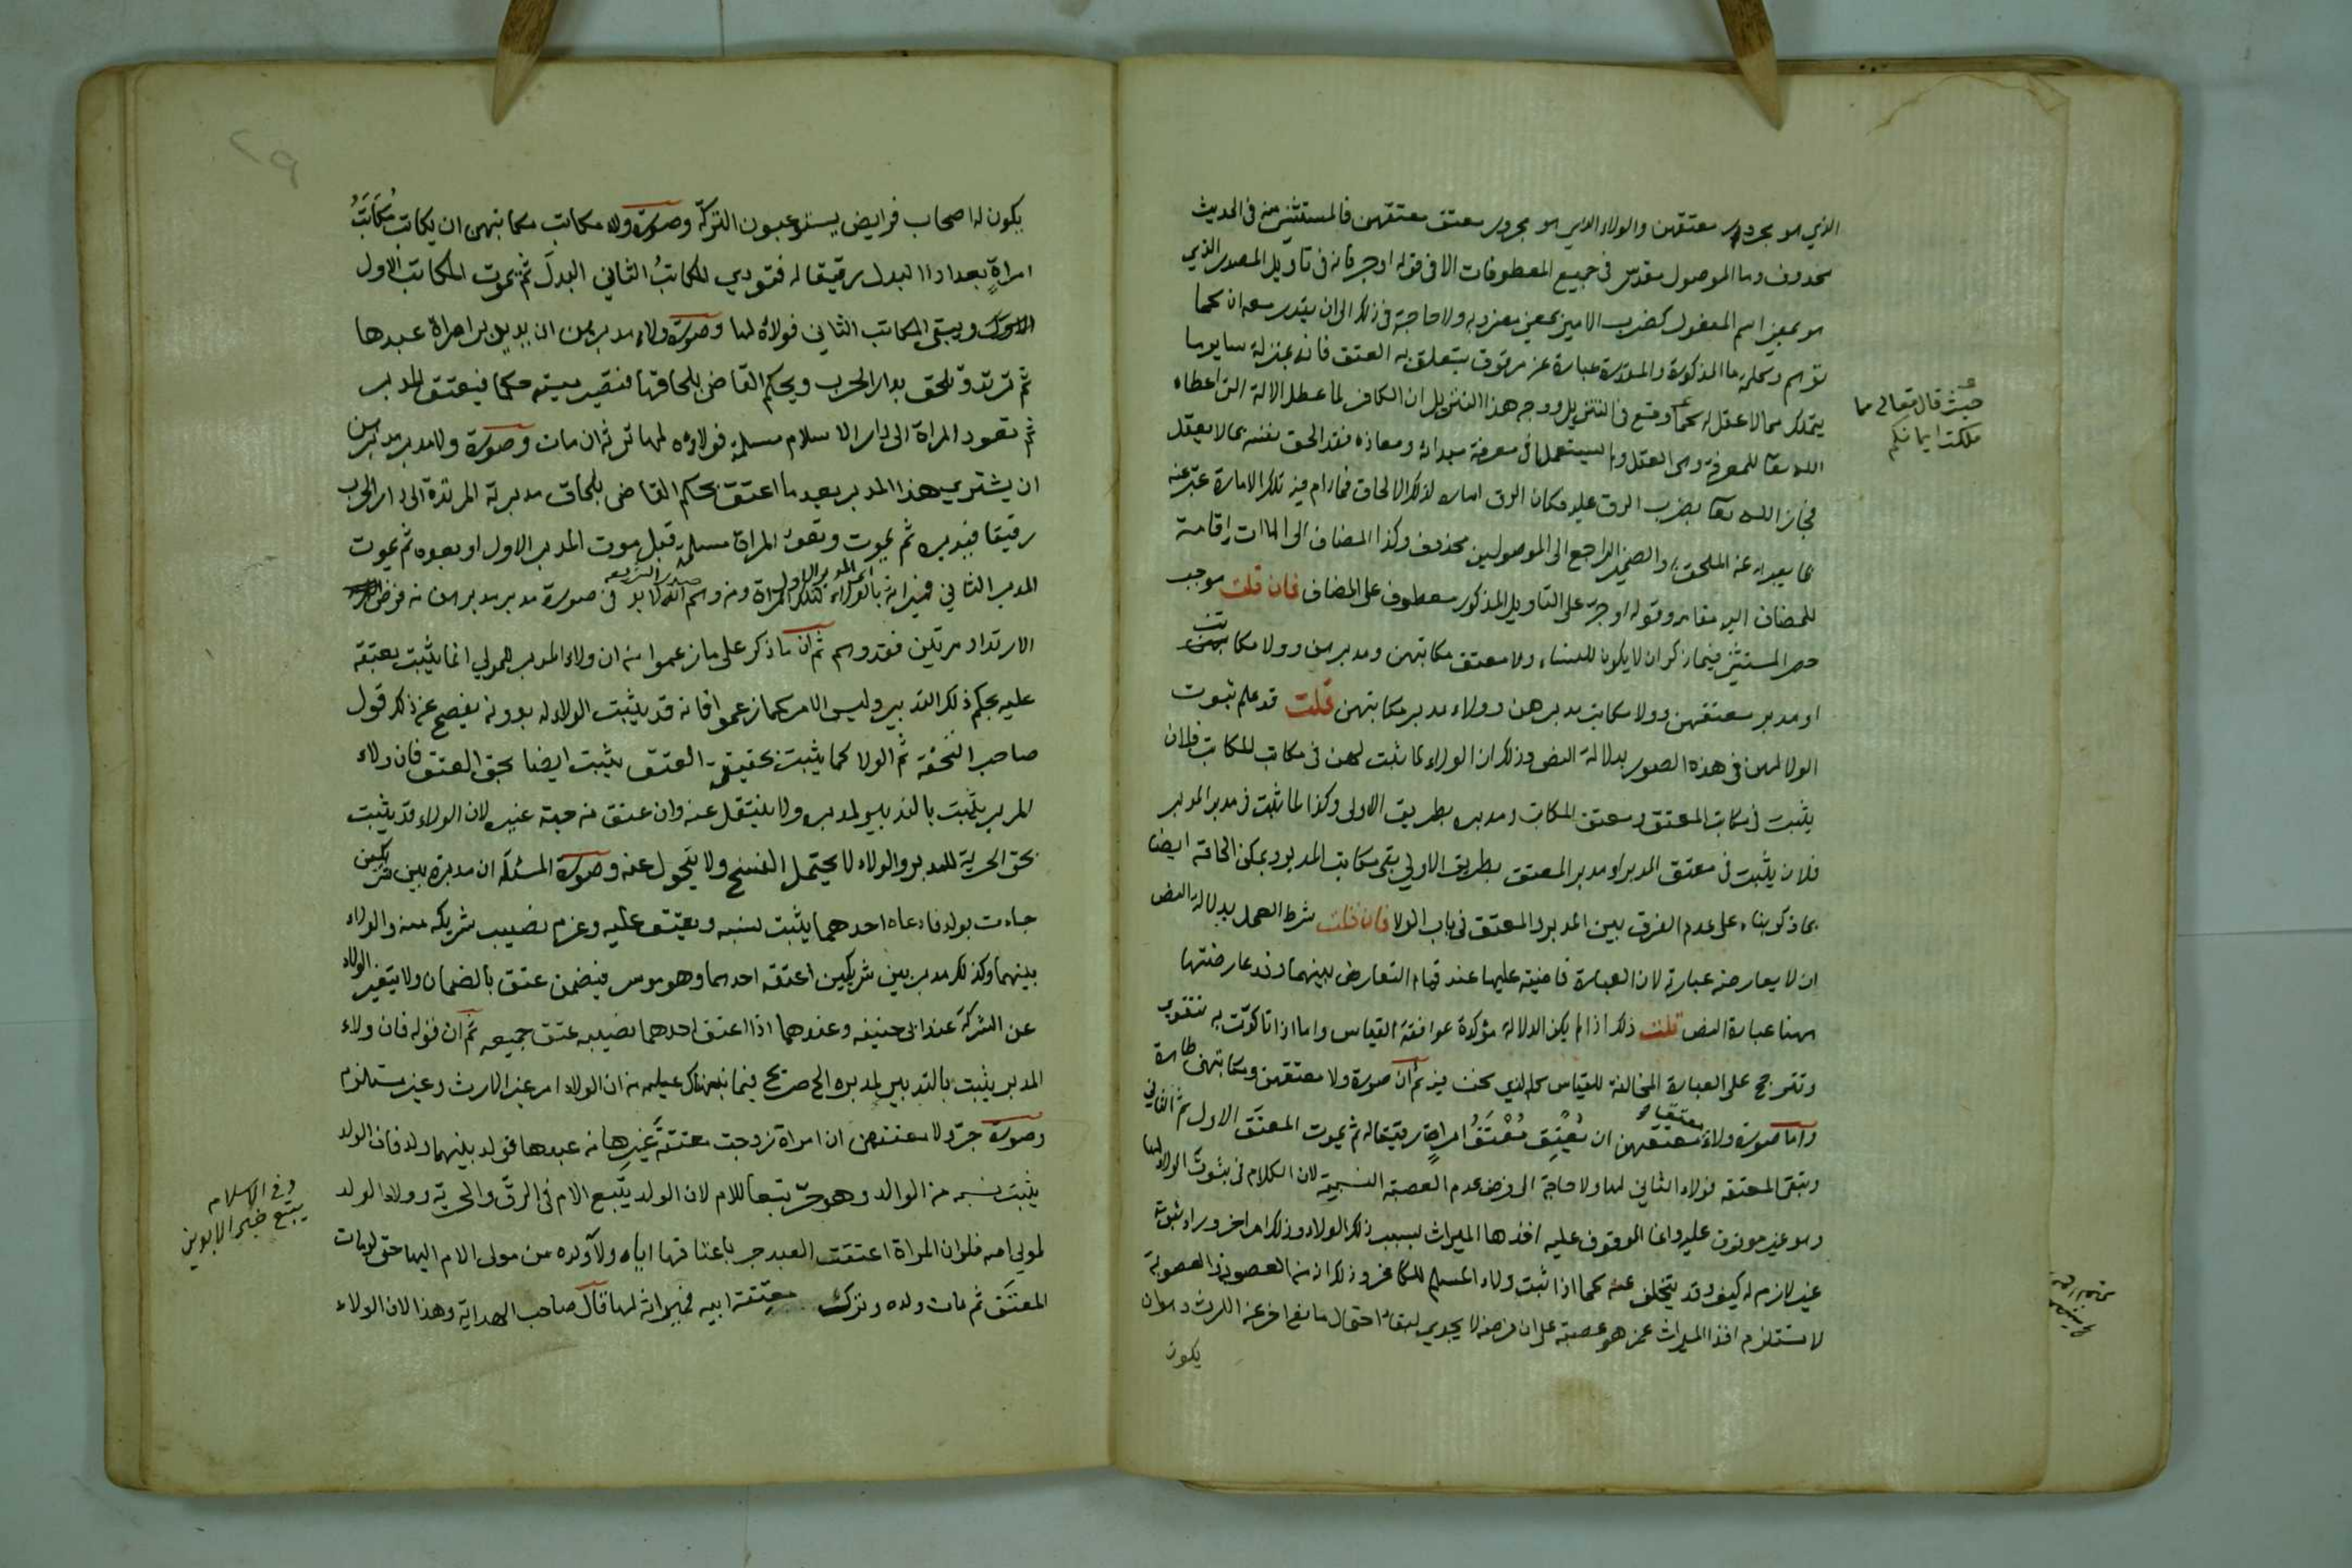 الذي هو مجرور معتقهن والولاء الذي هو مجرور معتق معتقهن فالمستثنى منه في الحديث
محذوف وما الموصول مقدر في جميع المعطوفات الا في قوله او جر فانه في تاويل المصدر الذي
هو بمعنى اسم المفعول كضرب الامير بمعنى مضروبه ولا حاجة في ذلك الى ان يقدر معه ان كما
توهم وكلمة ما المذكورة والمقدرة عبارة عن مرقوق يتعلق به العتق فانه بمنزلة ساير ما
يتملك مما لا عقل له كما وقع في التنزيل ووجه هذا التنزيل ان الكافر لما عطل الالة التي اعطاه
الله تعا للمعرفة وهي العقل ولم يستعملها في معرفة مبدائه ومعاده فقد الحق نفسه بما لا يعقل
فجازاه الله تعا بضرب الرق عليه فكان الرق امارة لذلك الالحاق فما دام فيه تلك الامارة عبر عنه
بما يعبر به عن الملحق به والضمير الراجع الى الموصولين محذوف وكذا المضاف الى المات اقامة
للمضاف اليه مقامه وقوله او جر على التاويل المذكور معطوف على المضاف فان قلت موجب
حصر المستثنى فيما ذكر ان لا يكون للنساء ولاء معتق مكاتبهن ومدبرهن وولا مكاتب
او مدبر معتقهن وولا مكاتب مدبرهن وولاء مدبر مكاتبهن قلت قد علم ثبوت
الولا لهن في هذه الصور بدلالة النص وذلك ان الولاء لما ثبت لهن في مكاتب المكاتب فلان
يثبت في مكاتب المعتق ومعتق المكاتب ومدبره بطريق الاولى وكذا لما ثبت في مدبر المدبر
فلان يثبت في معتق المدبر او مدبر المعتق بطريق الاولى بقي مكاتب المدبر ويمكن الحاقه ايضا
بما ذكر بناء على عدم الفرق بين المدبر والمعتق في باب الولا فان قلت شرط العمل بدلالة النص
ان لا يعارضه عبارته لان العبارة قاضية عليها عند قيام التعارض بينهما وقد عارضتها
ههنا عبارة النص قلت ذلك اذا لم يكن الدلالة مؤكدة بموافقة القياس واما اذا تاكدت به فتقوى
وتترجح على العبارة المخالفة للقياس كالذي نحن فيه ثم ان صورة ولا معتقهن ومكاتبهن ظاهرة
واما صورة ولاء معتق معتقهن ان يعتق معتق امراة رقيقا له ثم يموت المعتق الاول ثم الثاني
وتبقى المعتقة فولاء الثاني لها ولا حاجة الى فرض عدم العصبة النسبية لان الكلام في ثبوت الولاء لها
وهو غير موقوف عليه وانما الموقوف عليه اخذها الميراث بسبب ذلك الولاء وذلك امر اخر وراء ثبوته
غير لازم له كيف وقد يتخلف عنه كما اذا ثبت ولاء المسلم للكافر وذلك ان العصوبة
لا تستلزم اخذ الميراث عمن هو عصبة على ان فرضه لا يجدي لبقاء احتمال مانع اخر عن الارث وهو ان
يكون
حيث قال تعالى مما
ملكت ايمانكم
يكون له اصحاب فرايض يستوعبون التركة وصورة ولاء مكاتب مكاتبهن ان يكاتب مكاتب
امراة بعد اداء البدل رقيقا له فتودي المكاتب الثاني البدل ثم يموت المكاتب الاول
ويبقى المكاتب الثاني فولاؤه لها وصورة ولاء مدبرهن ان يدبر امراة عبدها
ثم ترتد وتلحق بدار الحرب ويحكم القاضي بلحاقها فتصير ميتة حكما فيعتق المدبر
ثم تعود المراة الى دار الاسلام مسلمة فولاؤه لها ترثه ان مات وصورة ولاء مدبر مدبرهن
ان يشتري هذا المدبر بعد ما اعتق بحكم القاضي بلحاق مدبرته المرتدة الى دار الحرب
رقيقا فيدبره ثم يموت وتعود المراة مسلمة قبل موت المدبر الاول او بعده ثم يموت
المدبر الثاني فميراثه بالولاء لتلك المراة ومن وهم انه لا بد في صورة مدبر مدبرهن من فرض
الارتداد مرتين فقد وهم ثم ان ما ذكر على ما زعموا من ان ولاء المدبر للمولى انما يثبت بعتقه
عليه بحكم ذلك التدبير وليس الامر كما زعموا فانه قد يثبت الولاء له بدونه يفصح عن ذلك قول
صاحب التحفة ثم الولا كما يثبت بحقيقة العتق يثبت ايضا بحق العتق فان ولاء
المدبر يثبت بالتدبير لمدبره ولا ينتقل عنه وان عتق من جهة غيره لان الولاء قد يثبت
بحق الحرية للمدبر والولاء لا يحتمل الفسخ ولا يتحول عنه وصورة المسئلة ان مدبرة بين شريكين
جاءت بولد فادعاه احدهما يثبت نسبه ويعتق عليه وغرم نصيب شريكه منه والولاء
بينهما وكذلك مدبر بين شريكين اعتقه احدهما وهو موسر فيضمن عتق بالضمان ولا يتغير الولاء
عن الشركة عند ابي حنيفه وعندهما اذا اعتق احدهما نصيبه عتق جميعه ثم ان قوله فان ولاء
المدبر يثبت بالتدبير لمدبره الخ صريح فيما نبهناك عليه من ان الولاء امر غير الارث وغير مستلزم
وصورة جر ولا معتقهن ان امراة زوجت معتقة غيرها من عبدها فولد بينهما ولد فان الولد
يثبت نسبه من الوالد وهو حر تبعا للام لان الولد يتبع الام في الرق والحرية وولاء الولد
لمولى امه فلو ان المراة اعتقت العبد جر باعتاقها اياه ولاء ولده من مولى الام اليها حتى لو مات
المعتق ثم مات ولده وترك معتقة ابيه فميراثه لها قال صاحب الهداية وهذا لان الولاء
وفي الاسلام
يتبع خير الابوين
٢٩